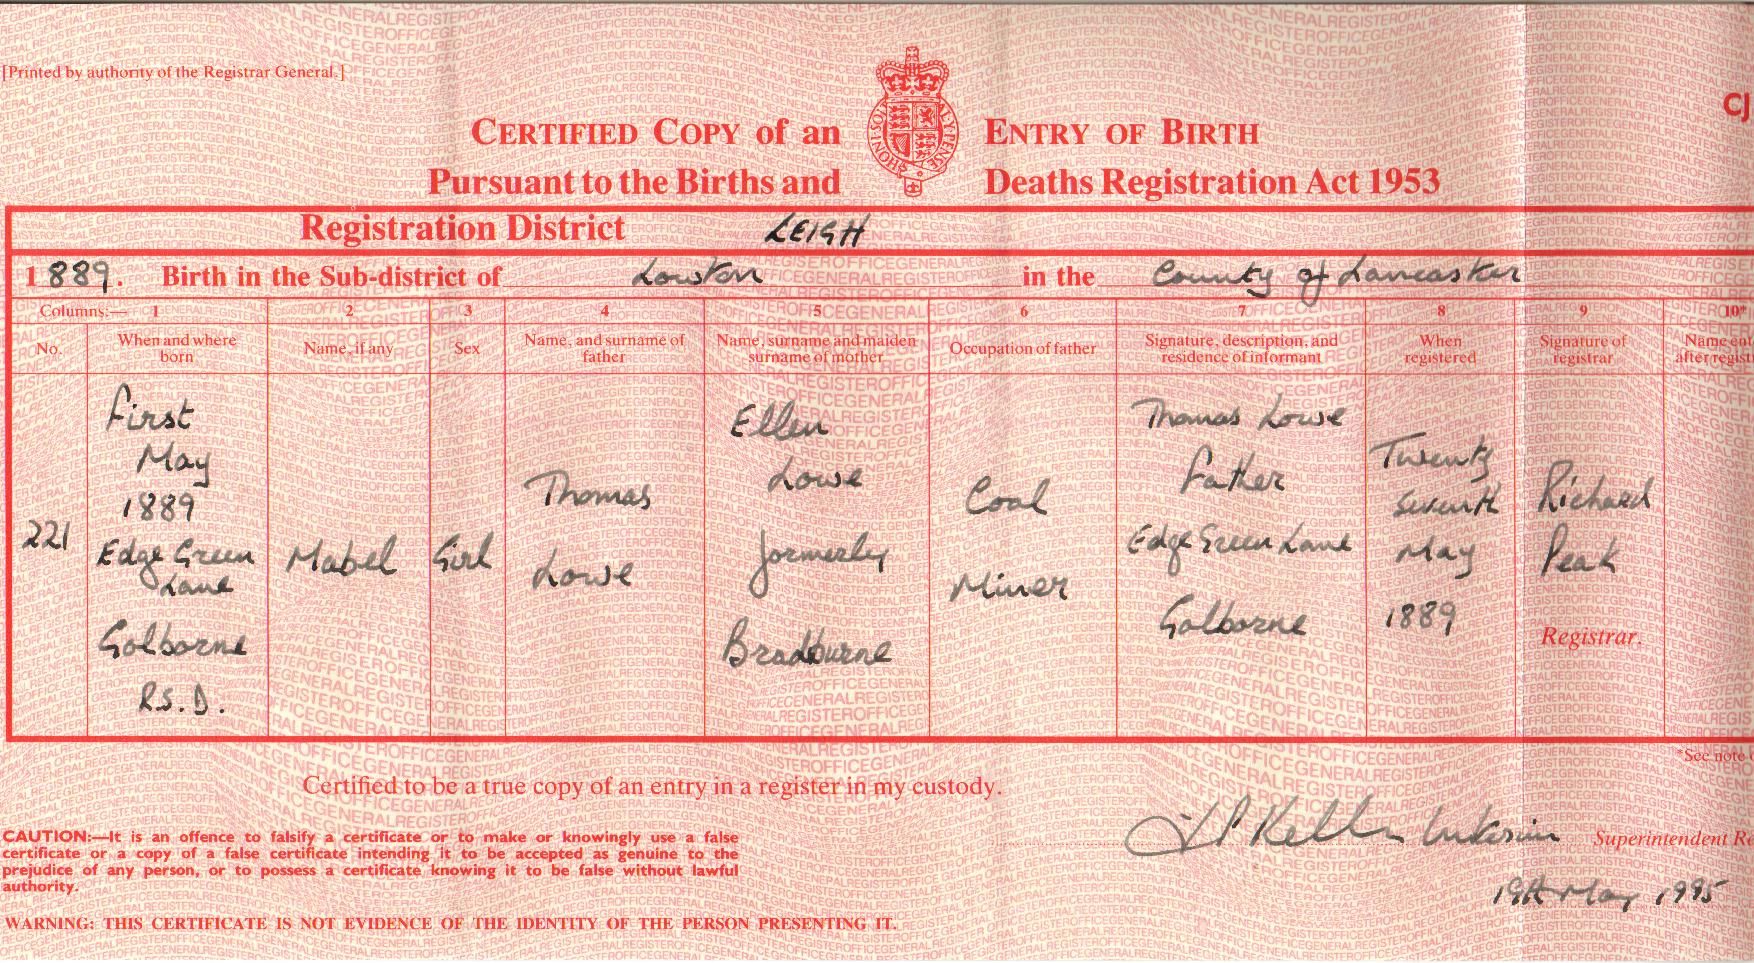 [Printed by authority of the Registrar General.]
CJ
CERTIFIED COPY of an ENTRY OF BIRTH
Pursuant to the Births and Deaths Registration Act 1953
HONI SOI
Registration District LEIGH
1889. Birth in the Sub-district of Lowton in the County of Lancaster
Columns:— 1 2 3 4 5 6 7 8 9 10*
No.
When and where
born
Name, if any
Sex
Name, and surname of
father
Name, surname and maiden
surname of mother
Occupation of father
Signature, description, and
residence of informant
When
registered
Signature of
registrar
Name ent
after regist
221
First
May
1889
Edge Green
Lane
Golborne
R.S.D.
Mabel
Girl
Thomas
Lowe
Ellen
Lowe
formerley
Bradburne
Coal
Miner
Thomas Lowe
Father
Edge Green Lane
Golborne
Twenty
Seventh
May
1889
Richard
Peak
Registrar.
*See note
Certified to be a true copy of an entry in a register in my custody.
Interim Superintendent Re
19th May 1995
CAUTION:—It is an offence to falsify a certificate or to make or knowingly use a false
certificate or a copy of a false certificate intending it to be accepted as genuine to the
prejudice of any person, or to possess a certificate knowing it to be false without lawful
authority.
WARNING: THIS CERTIFICATE IS NOT EVIDENCE OF THE IDENTITY OF THE PERSON PRESENTING IT.